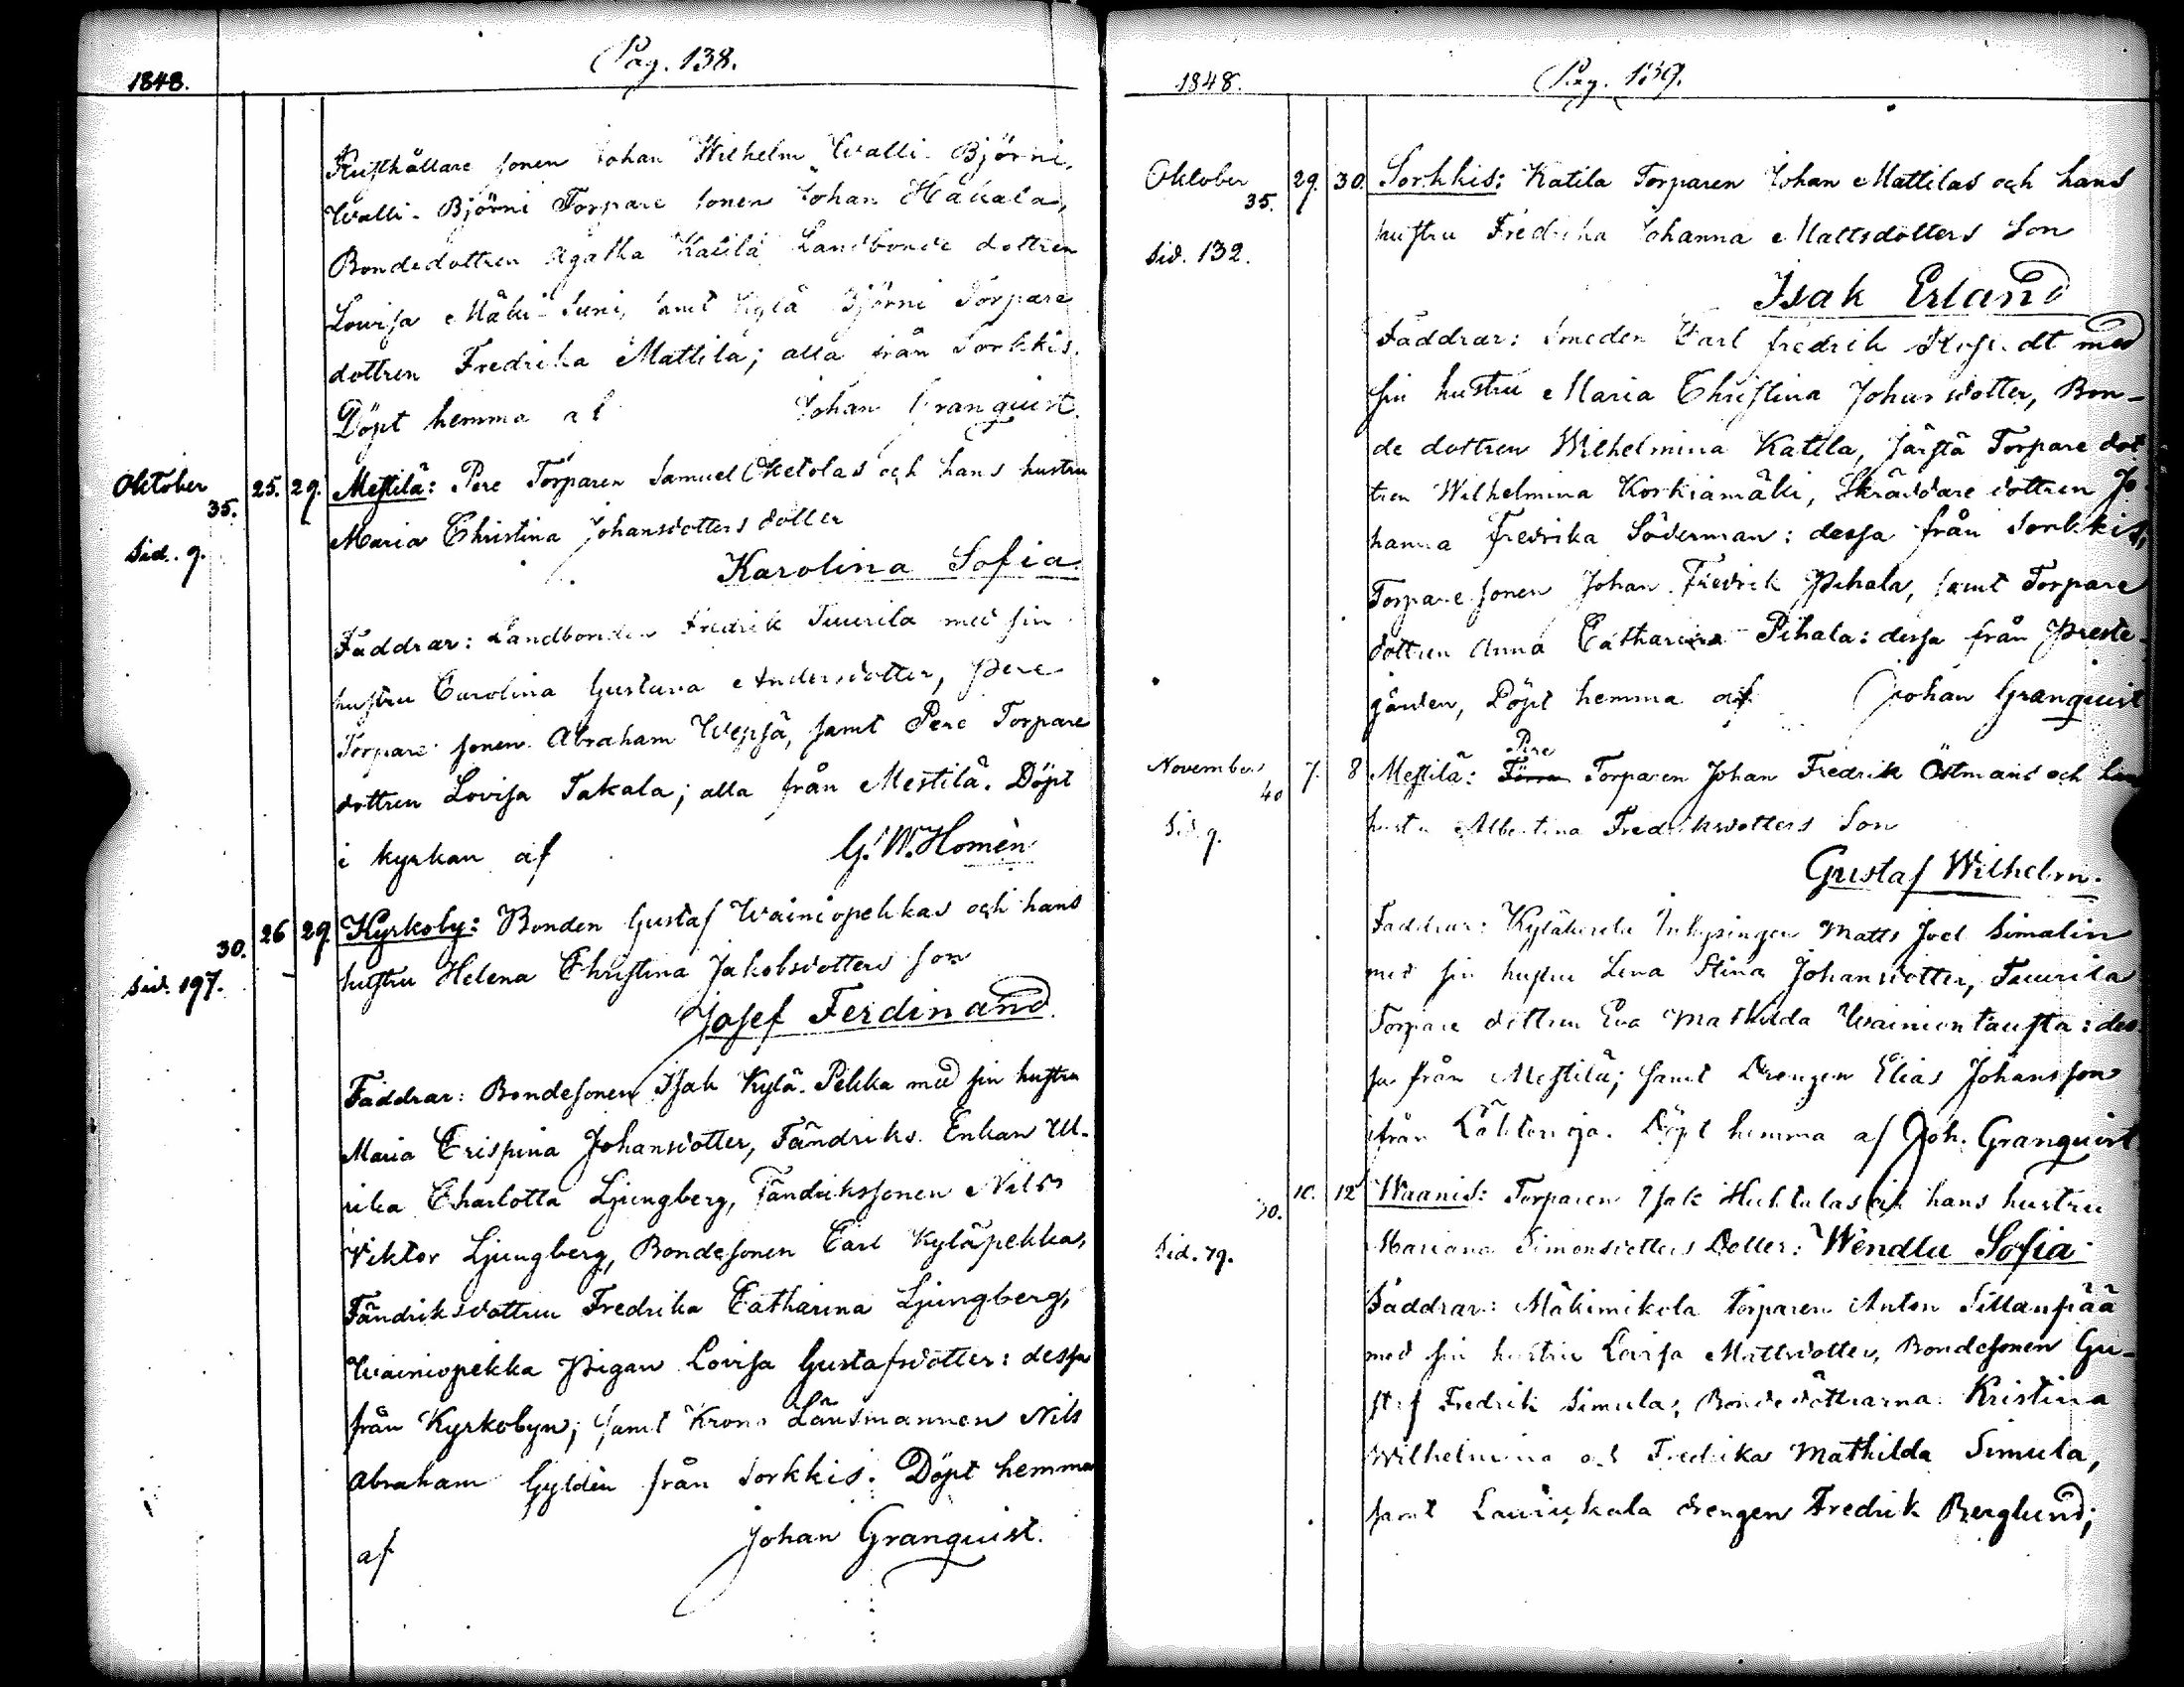 1848.
Pag. 138.
Rusthållare sonen Johan Wilhelm Walli-Björni,
Walli-Björni Torpare sonen Johan Hakala,
Bondedottren Agatha Katila Landbonde dottren
Lovisa Mäki-Suni, samt Kylä Björni Torpare
dottren Fredrika Mattila; alla från Sorkkis.
Döpt hemma af Johan Granquist.
Oktober 35. 25. 29. Mestilä: Pere Torparen Samuel Ketolas och hans hustru
Sid. 9. Maria Christina Johansdotters dotter
Karolina Sofia.
Faddrar: Landbonden Fredrik Tuurila med sin
hustru Carolina Gustava Andersdotter, Pere
Torpare sonen Abraham Wepsä, samt Pere Torpare
dottren Lovisa Takala; alla från Mestilä. Döpt
i kyrkan af G. W. Homèn
30. 26 29. Kyrkoby: Bonden Gustaf Wainiopekkas och hans
Sid. 197. hustru Helena Christina Jakobsdotters son
Josef Ferdinand.
Faddrar: Bondesonen Isak Kylä-Pekka med sin hustru
Maria Crispina Johansdotter, Fändriks Enkan Ul-
rika Charlotta Ljungberg, Fändrikssonen Nils
Viktor Ljungberg, Bondesonen Carl Kyläpekka,
Fändriksdottren Fredrika Catharina Ljungberg,
Wainiopekka Pigan Lovisa Gustafsdotter: dessa
från Kyrkobyn; samt Krono Länsmannen Nils
Abraham Gyldèn från Sorkkis. Döpt hemma
af Johan Granquist.
1848.
Pag. 139.
Oktober 35. 29. 30. Sorkkis: Katila Torparen Johan Mattilas och hans
Sid. 132. hustru Fredrika Johanna Mattsdotters Son
Isak Erland
Faddrar: Smeden Carl Fredrik med
sin hustru Maria Christina Johansdotter, Bon-
de dottren Wilhelmina Katila, Torpare dot
tren Wilhelmina Korkiamäki, Skräddare dottren Jo
hanna Fredrika Söderman: dessa från Sorkkis,
Torpare sonen Johan Fredrik Pihala, samt Torpare
dottren Anna Catharina Pihala: dessa från Preste-
gården, Döpt hemma af Johan Granquist
Pere
November 40 7. 8 Mestilä: Torparen Johan Fredrik Östmans och hans
Sid. 9. hustru Albertina Fredriksdotters Son
Gustaf Wilhelm.
Faddrar: Inhysingen Matts Joel Simalin
med sin hustru Lena Stina Johansdotter, Tuurila
Torpare dottren Eva Mathilda Wainiontausta: des
sa från Mestilä; samt Drengen Elias Johansson
från Döpt hemma af Joh. Granquist
30. 10. 12 Waanis: Torparen Isak Huhtalas och hans hustru
Sid. 79. Mariana Simonsdotters Dotter: Wendla Sofia
Faddrar: Mäkimikola torparen Anton Sillanpää
med sin hustru Lovisa Mattsdotter, Bondesonen Gu-
staf Fredrik Simula, Bondedöttrarna Kristina
Wilhelmina och Fredrika Mathilda Simula,
samt drengen Fredrik Berglund;